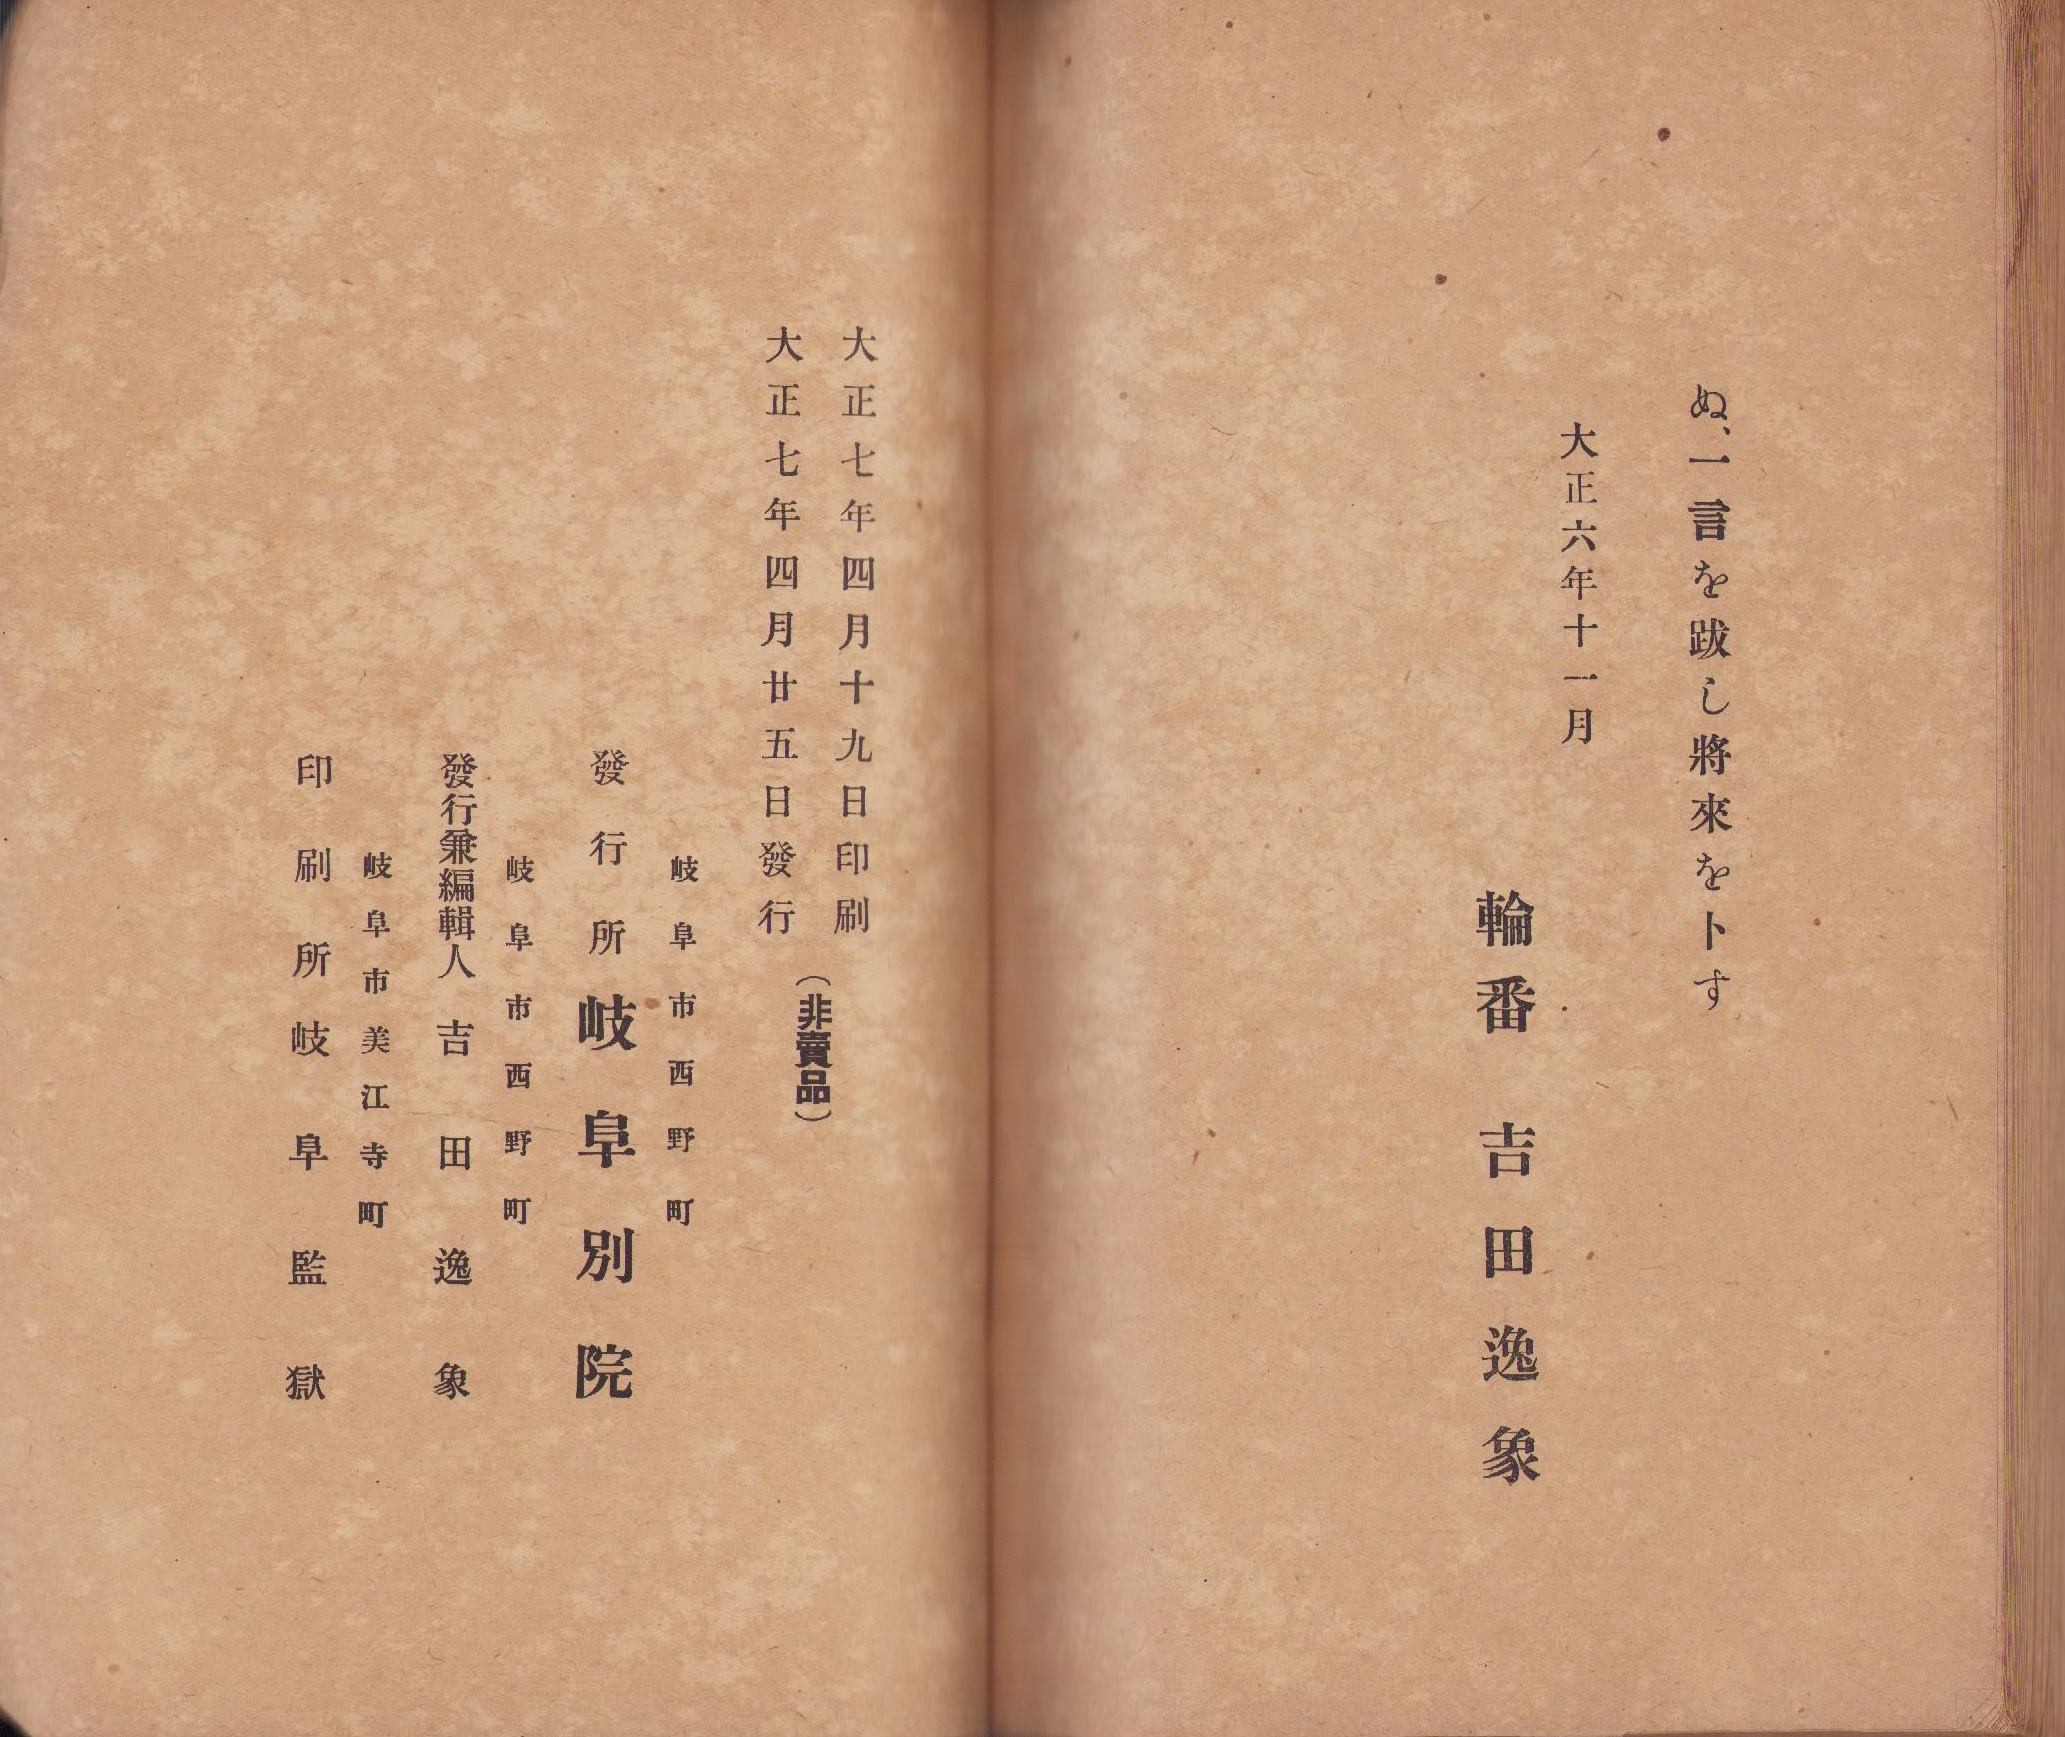 ぬ、一言を跋し將來を卜す
大正六年十一月
輪番 吉田逸象
大正七年四月十九日印刷
大正七年四月廿五日發行
（非賣品）
岐阜市西野町
發行所 岐阜別院
岐阜市西野町
發行兼編輯人 吉田逸象
岐阜市美江寺町
印刷所 岐阜監獄